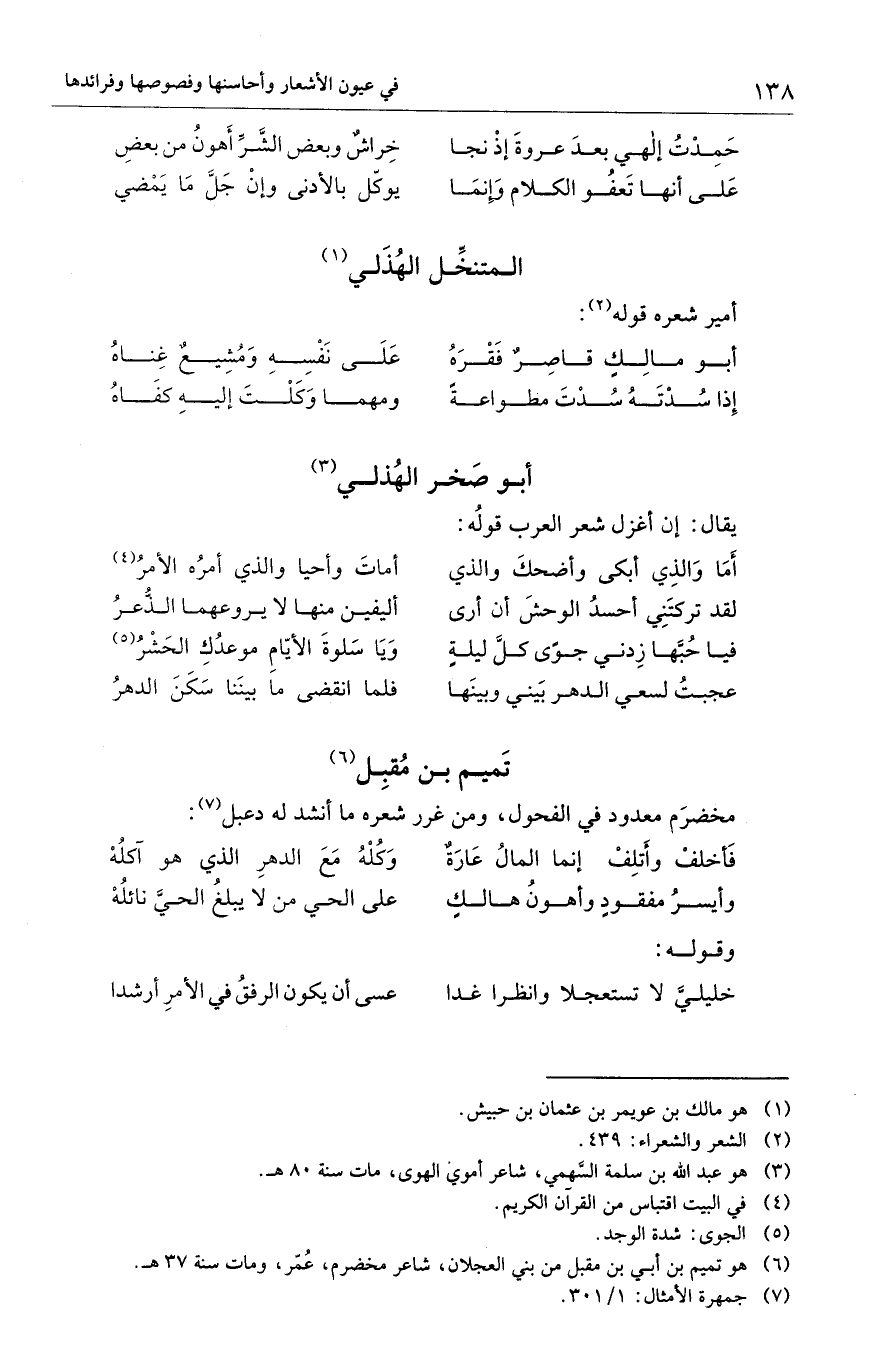 ١٣٨ في عيون الأشعار وأحاسنها وفصوصها وفرائدها
حَمِدْتُ إلٰهي بعدَ عروةَ إذْ نجا خِراشٌ وبعض الشَّرِّ أَهونُ من بعضِ
عَلى أنها تَعفُو الكلام وَإنمَا يوكّل بالأدنى وإنْ جَلَّ مَا يَمْضي
المتنخِّل الهُذَلي(١)
أمير شعره قوله(٢):
أبو مالِكٍ قاصِرٌ فَقْرَهُ عَلَى نَفْسِهِ وَمُشِيعٌ غِناهُ
إذا سُدْتَهُ سُدْتَ مطواعةً ومهما وَكَلْتَ إليهِ كفَاهُ
أبو صَخر الهُذلي(٣)
يقال: إن أغزل شعر العرب قولُه:
أَمَا وَالذِي أبكى وأضحكَ والذي أماتَ وأحيا والذي أمرُه الأمرُ(٤)
لقد تركتَني أحسدُ الوحشَ أن أرى أليفين منها لا يروعهما الذُّعرُ
فيا حُبَّها زِدني جوًى كلَّ ليلةٍ وَيَا سَلوةَ الأيّامِ موعدُكِ الحَشْرُ(٥)
عجبتُ لسعي الدهر بَيني وبينَها فلما انقضى ما بينَنا سَكَنَ الدهرُ
تَميم بن مُقبِل(٦)
مخضرَم معدود في الفحول، ومن غرر شعره ما أنشد له دعبل(٧):
فَأخلفْ وأَتلِفْ إنما المالُ عَارَةٌ وَكُلْهُ مَعَ الدهرِ الذي هو آكلُهْ
وأيسرُ مفقودٍ وأهونُ هالكٍ على الحي من لا يبلغُ الحيَّ نائلُهْ
وقوله:
خليليَّ لا تستعجلا وانظرا غدا عسى أن يكون الرفقُ في الأمرِ أرشدا
(١) هو مالك بن عويمر بن عثمان بن حبيش.
(٢) الشعر والشعراء: ٤٣٩.
(٣) هو عبد الله بن سلمة السَّهمي، شاعر أموي الهوى، مات سنة ٨٠ هـ.
(٤) في البيت اقتباس من القرآن الكريم.
(٥) الجوى: شدة الوجد.
(٦) هو تميم بن أبي بن مقبل من بني العجلان، شاعر مخضرم، عُمّر، ومات سنة ٣٧ هـ.
(٧) جمهرة الأمثال: ٣٠١/١.